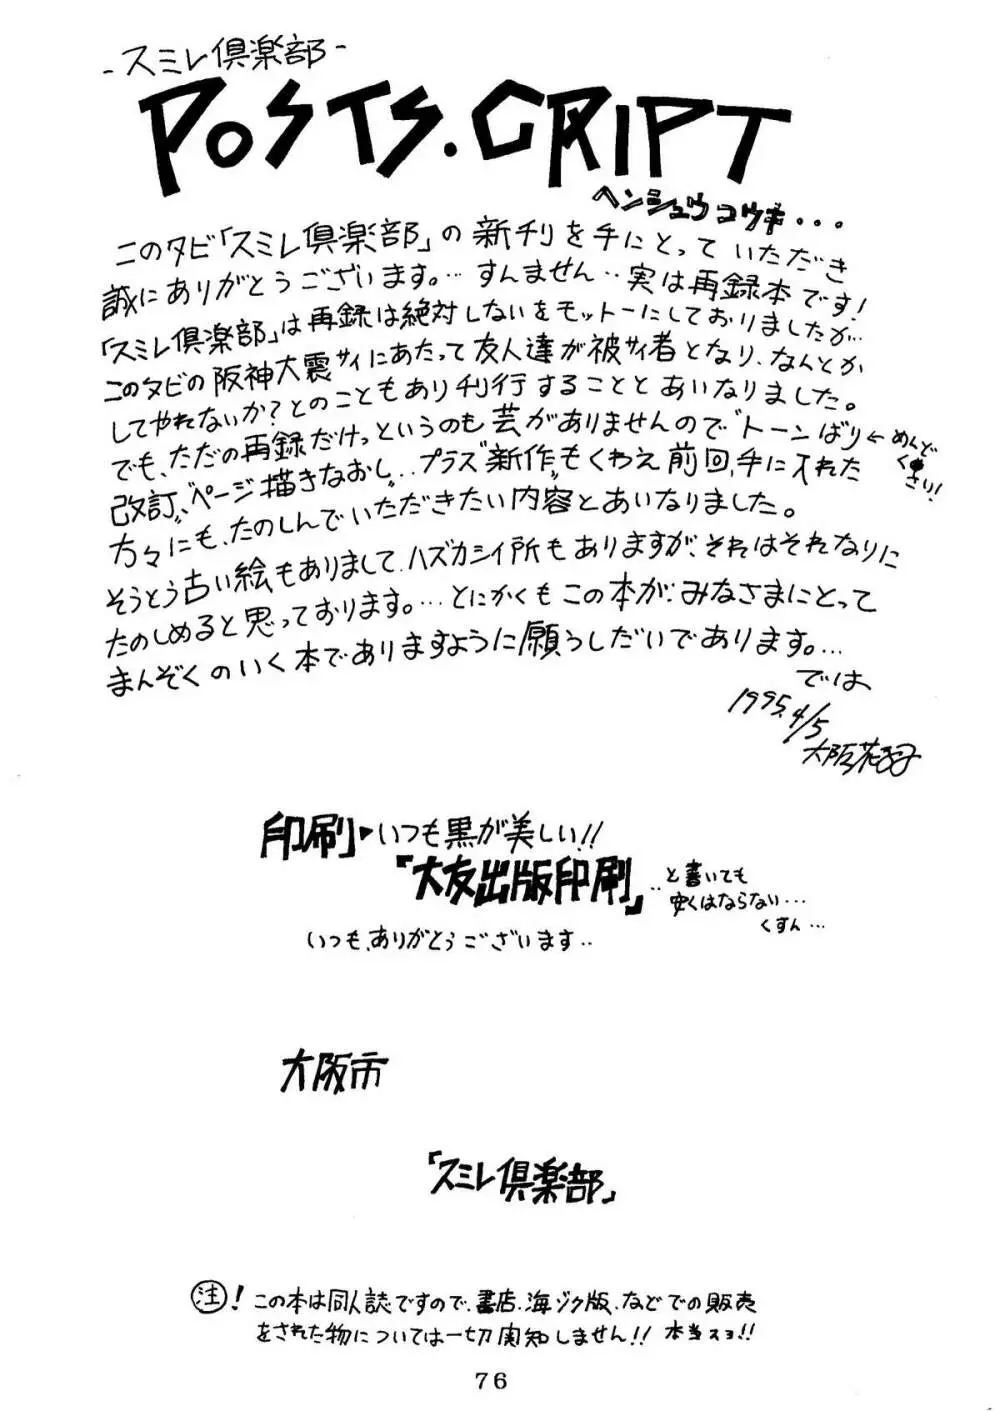 -スミレ倶楽部-
POSTS.CRIPT
ヘンシュウコウキ・・・
このタビ「スミレ倶楽部」の新刊を手にとっていただき
誠にありがとうございます。…すんません‥実は再録本です!
「スミレ倶楽部」は再録は絶対しないをモットーにしておりましたが…
このタビの阪神大震サイにあたって友人達が被サイ者となり、なんとか
してやれないか?とのこともあり刊行することとあいなりました。
でも、ただの再録だけっというのも芸がありませんので〝トーンばり←めんどくさい!
改訂〟、〝ページ描きなおし〟‥プラス〝新作〟もくわえ前回、手に入れた
方々にも、たのしんでいただきたい内容とあいなりました。
そうとう古い絵もありまして、ハズカシイ所もありますが、それはそれなりに
たのしめると思っております。…とにかくもこの本が、みなさまにとって
まんぞくのいく本でありますように願うしだいであります。…
では、
1995.4/5
大阪花子
印刷▶いつも黒が美しい!!
「大友出版印刷」‥と書いても
安くはならない…
くすん…
いつも、ありがとうございます‥
大阪市
「スミレ倶楽部」
注!この本は同人誌ですので、書店、海ゾク版、などでの販売
をされた物については一切関知しません!!本当スヨ!!
76